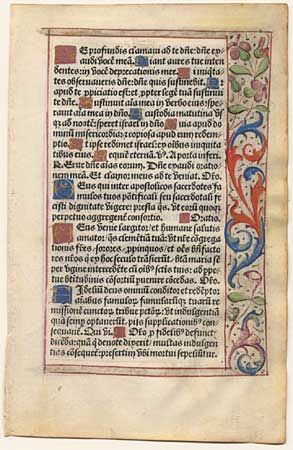 E profundis clamaui ad te dñe: dñe ex
audi vocē meã. Fiant aures tue inten
dentes: in vocē deprecationis mee. Si iniqta
tes obseruaueris dñe: dñe quis sustinebit.
apud te ppiciatio est: et ppter legē tuã sustinui
te dñe. Sustinuit aĩa mea in verbo eius: spe
rauit aĩa mea in dño. A custodia matutina vs
ad noctē: speret israel in dño. uia apud do
minũ misericordia: et copiosa apud eum redem
ptio. Et ipse redimet israel: ex oĩbus iniqui
tatibus eius. Requiē eternã. A porta inferi.
Erue dñe aĩas eorum. Dñe exaudi oratio
nem meã. Et clamor meus ad te veniat. Oro
Deus qui inter apostolicos sacerdotes fa
mulos tuos pōtificali seu sacerdotali fe
cisti dignitate vigere: presta qs. vt eorũ quoq
perpetuo aggregent cōsortio. Oratio.
Deus venie largitor: et humane salutis
amator: qs clemētiã tuã: vt nr̃e cōgrega
tionis fr̃es, sorores, ppinquos: et oēs bñfacto
res nr̃os q ex hoc seculo trãsierũt. btã maria sē
per vgine intercedēte cũ oĩbs sctis tuis: ad ppe
tue btitudinis cōsortiũ puenire cōcedas. Oro.
Fidelium deus omniũ conditor et redēptor
aĩabus famulorum famularũq tuarũ re
missionē cunctorũ tribue pctōrũ: vt indulgentiã
quã semp optauerũt. pijs supplicationibs con
sequant. Qui vi. Oro p fidelibs defunct
dicēda: quã q deuote dixerit, multas indulgen
tias cōsequet: presertim vbi mortui sepeliunt.